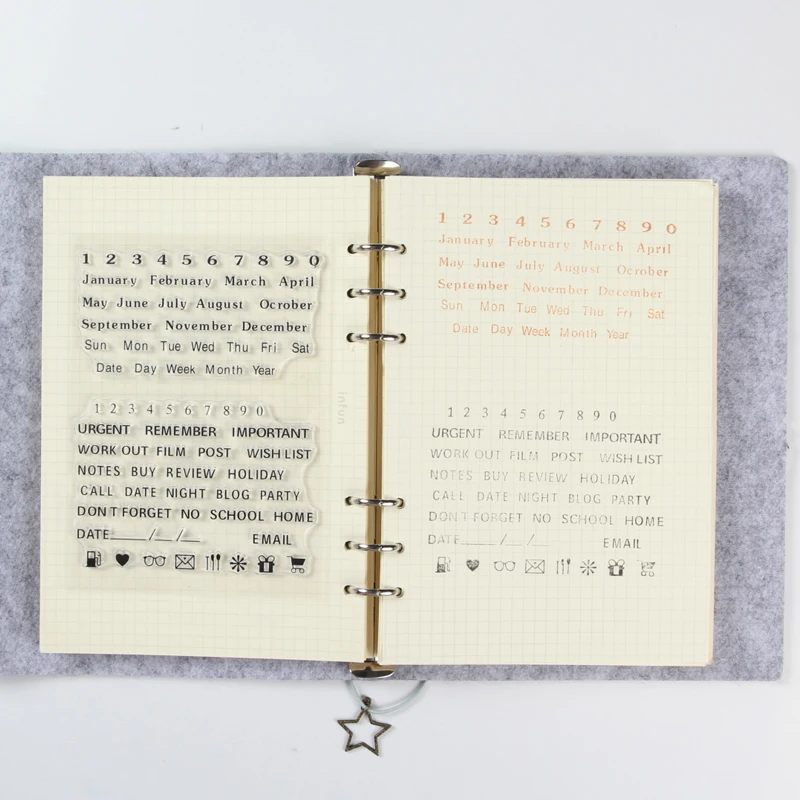 1 2 3 4 5 6 7 8 9 0
January February March April
May June July August Ocrober
September November December
Sun Mon Tue Wed Thu Fri Sat
Date Day Week Month Year
1 2 3 4 5 6 7 8 9 0
URGENT REMEMBER IMPORTANT
WORK OUT FILM POST WISH LIST
NOTES BUY REVIEW HOLIDAY
CALL DATE NIGHT BLOG PARTY
DON'T FORGET NO SCHOOL HOME
DATE_____/__/___ EMAIL
infun
1 2 3 4 5 6 7 8 9 0
January February March April
May June July August Ocrober
September November December
Sun Mon Tue Wed Thu Fri Sat
Date Day Week Month Year
1 2 3 4 5 6 7 8 9 0
URGENT REMEMBER IMPORTANT
WORK OUT FILM POST WISH LIST
NOTES BUY REVIEW HOLIDAY
CALL DATE NIGHT BLOG PARTY
DON'T FORGET NO SCHOOL HOME
DATE_____/__/___ EMAIL